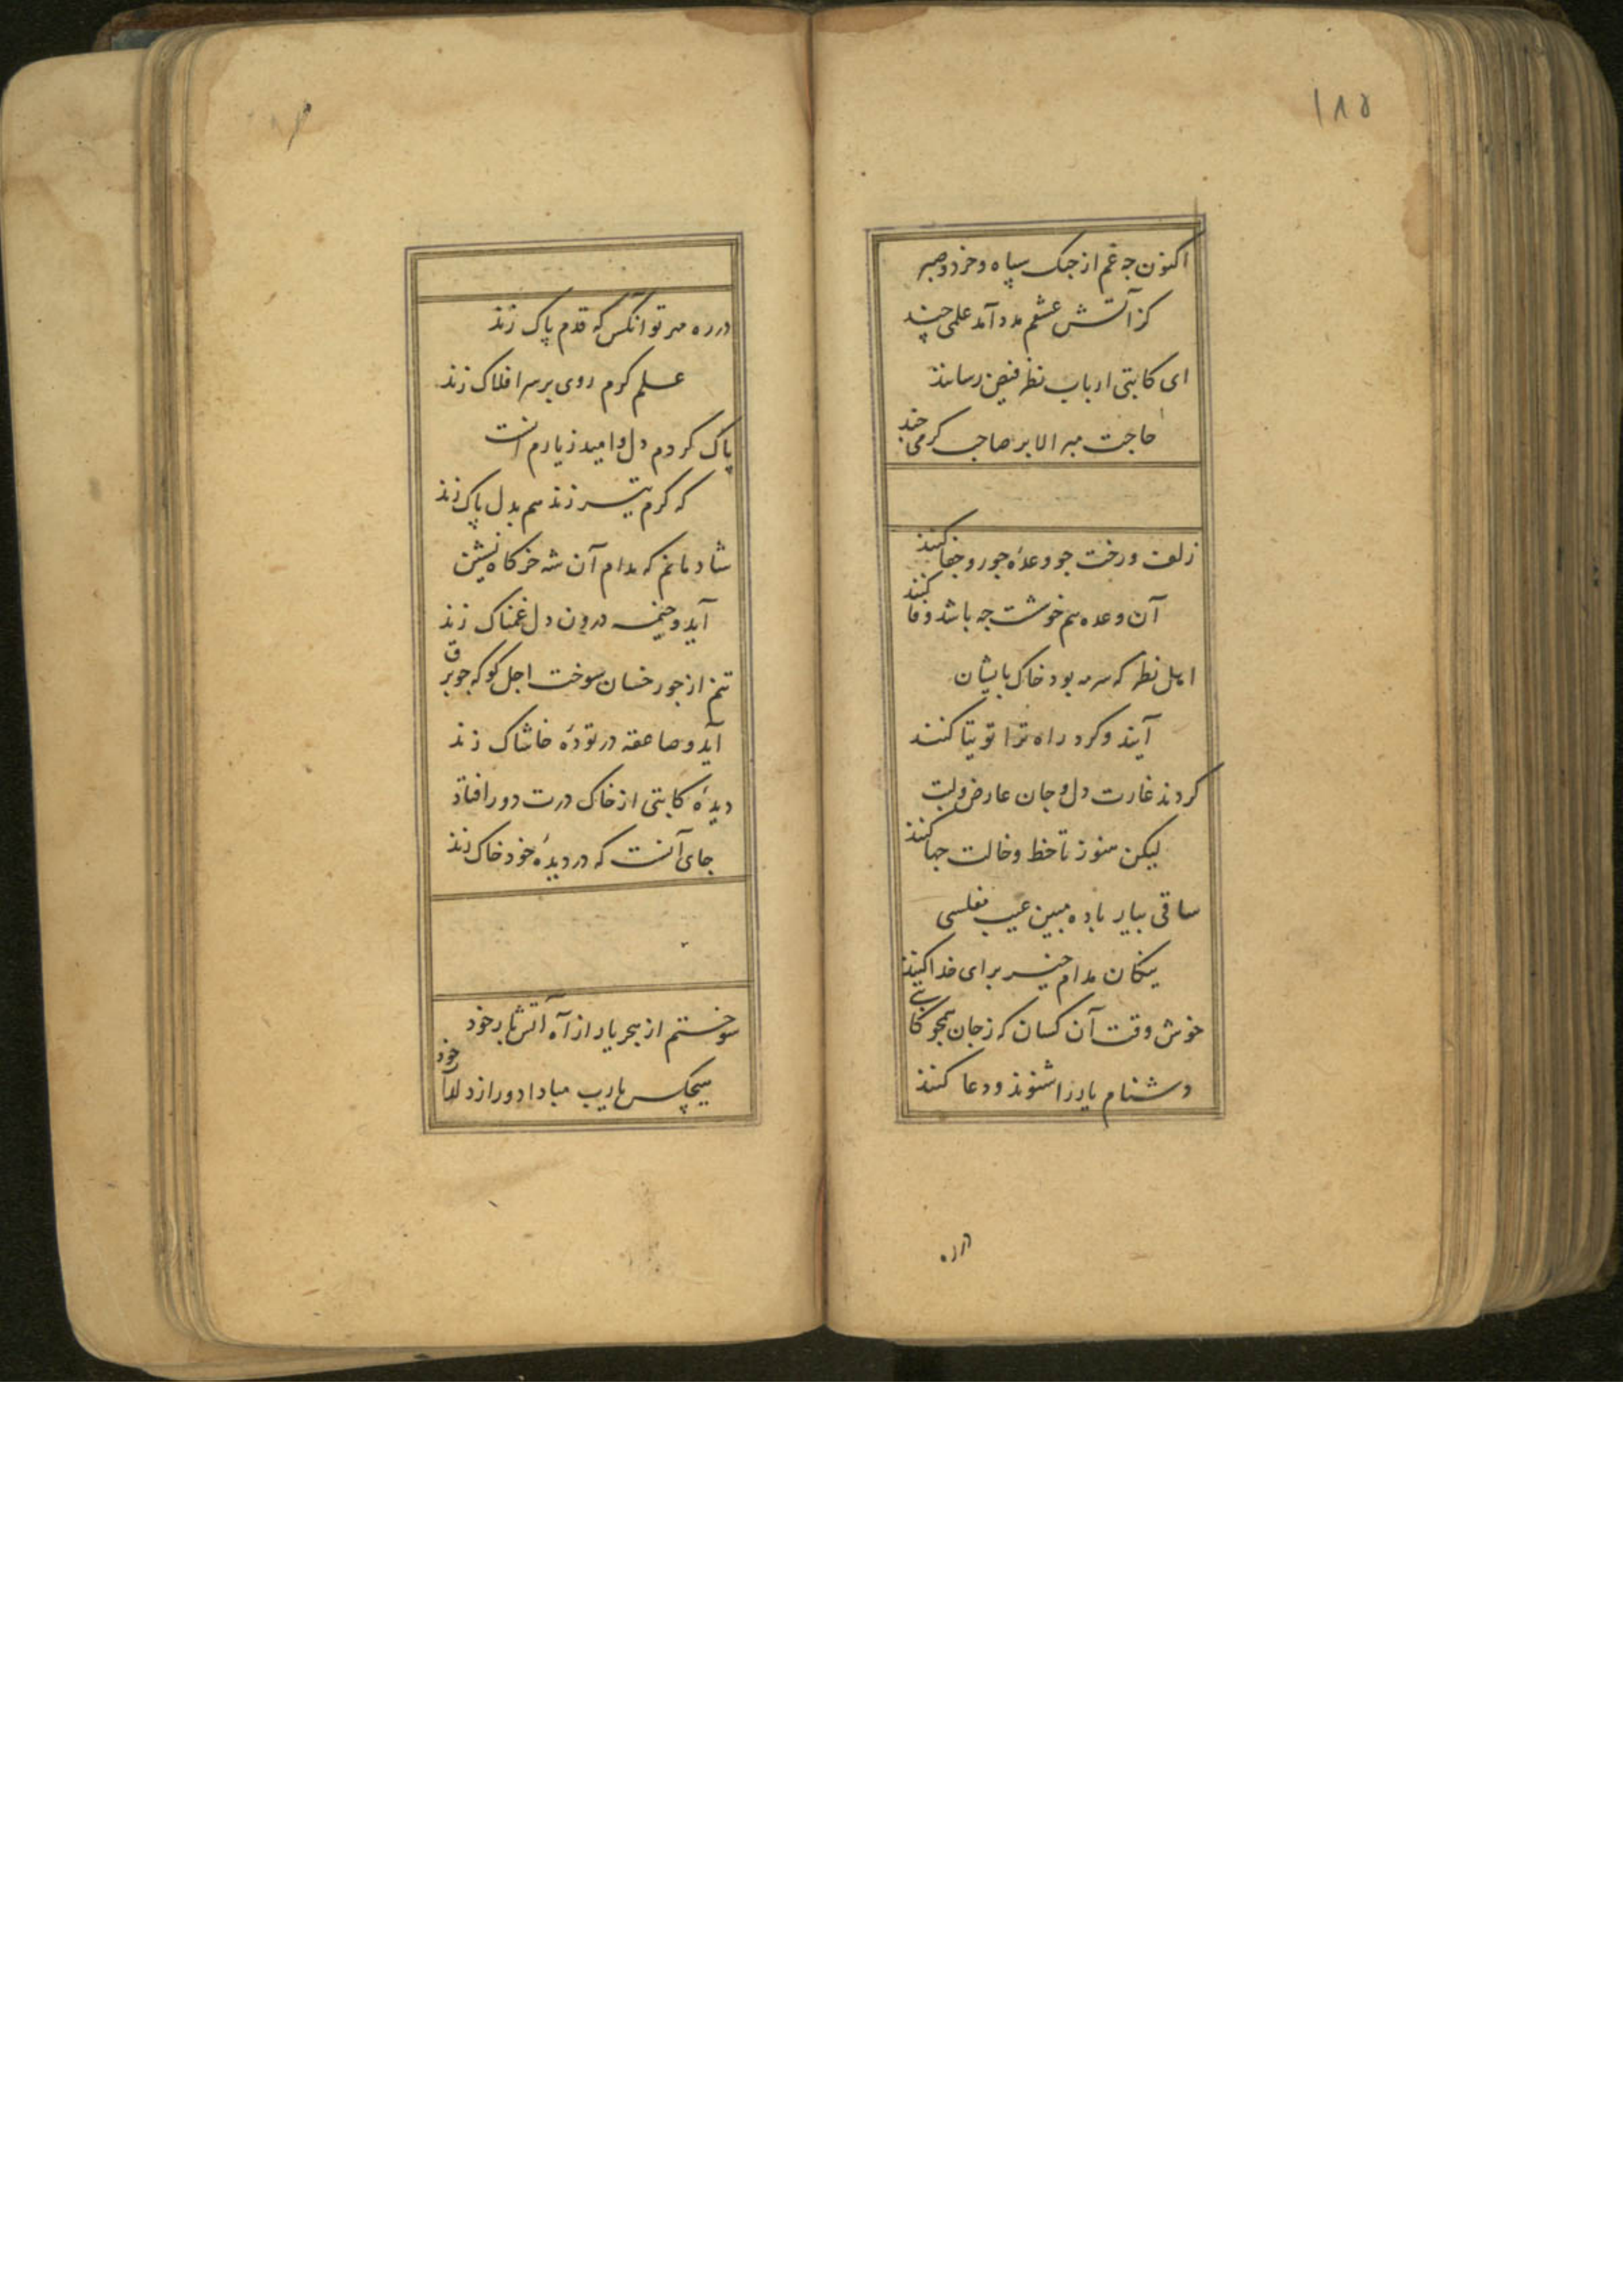 ۱۸۵
اکنون چه غم از جنک سپاه و خرد و صبر
کز آتش عشقم مدد آمد علمی چند
ای کاتبی ارباب نظر فیض رسانند
حاجت مبر الا بر صاحب کرمی چند
زلف و رخت جو وعدهٔ جور و جفا کنند
آن وعده هم خوشست جه باشد وفا کنند
اهل نظر که سرمه بود خاک پایشان
آیند و کرد راه ترا توتیا کنند
کردند غارت دل و جان عارض و لبت
لیکن هنوز تا خط و خالت جها کنند
ساقی بیار باده مبین عیب مفلسی
نیکان مدام خیر برای خدا کنند
خوش وقت آن کسان که ز جان همجو کاتبی
دشنام یار را شنوند و دعا کنند
در ره
در ره مهر تو آنکس که قدم پاک زند
علم کرم روی بر سر افلاک زند
پاک کردم دل و امید ز یارم آنست
که کرم تیر زند هم بدل پاک زند
شادمانم که مدام آن شه خرکاه نشین
آید و خیمه درون دل غمناک زند
تنم از جور خسان سوخت اجل کو که جو برق
آید و صاعقه در تودهٔ خاشاک زند
دیدهٔ کاتبی از خاک درت دور افتاد
جای آنست که در دیدهٔ خود خاک زند
سوختم از هجر یار از آه آتش بار خود
هیچکس یارب مبادا دور از دلدار خود